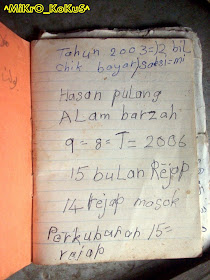 ^MiKrO_KoKuS^
Tahun 2003=12 bil
chik bayar/saksi=mi
Hasan pulang
ALam barzah
9=8=T=2006
15 buLan Rejap
14 rejap masok
Perkubanan 15=
rejap